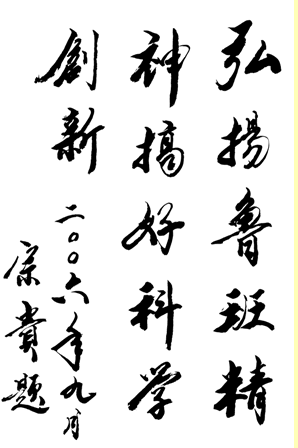 弘揚魯班精
神搞好科学
創新
二〇〇六年九月
宗貴题